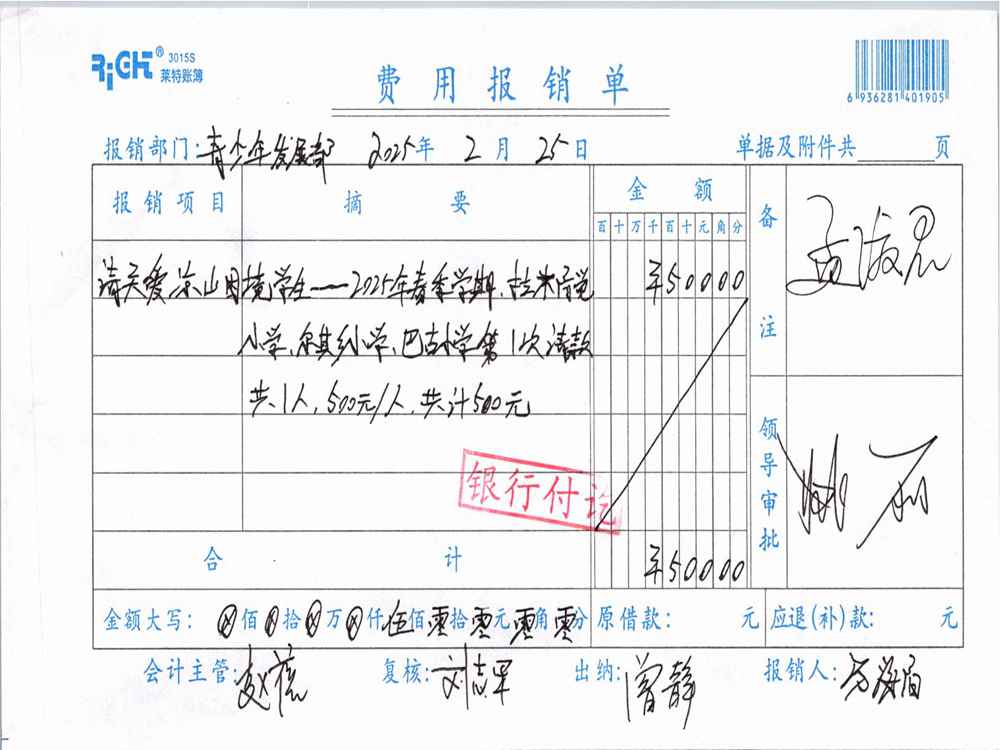 RIGHT® 3015S
莱特账簿
费用报销单
6 936281 401905
报销部门：青少年发展部 2025年 2月 25日 单据及附件共 页
报销项目 摘要 金额 备注
百十万千百十元角分
请关爱凉山困境学生——2025年春季学期、拉米 ¥50000
小学、尔其乡小学、巴古小学第1次请款
共1人，500元/人，共计500元
银行付讫
领导审批
合计 ¥50000
金额大写：⊗佰⊗拾⊗万⊗仟伍佰零拾零元零角零分 原借款： 元 应退（补）款： 元
会计主管： 复核：刘志军 出纳：曾静 报销人：